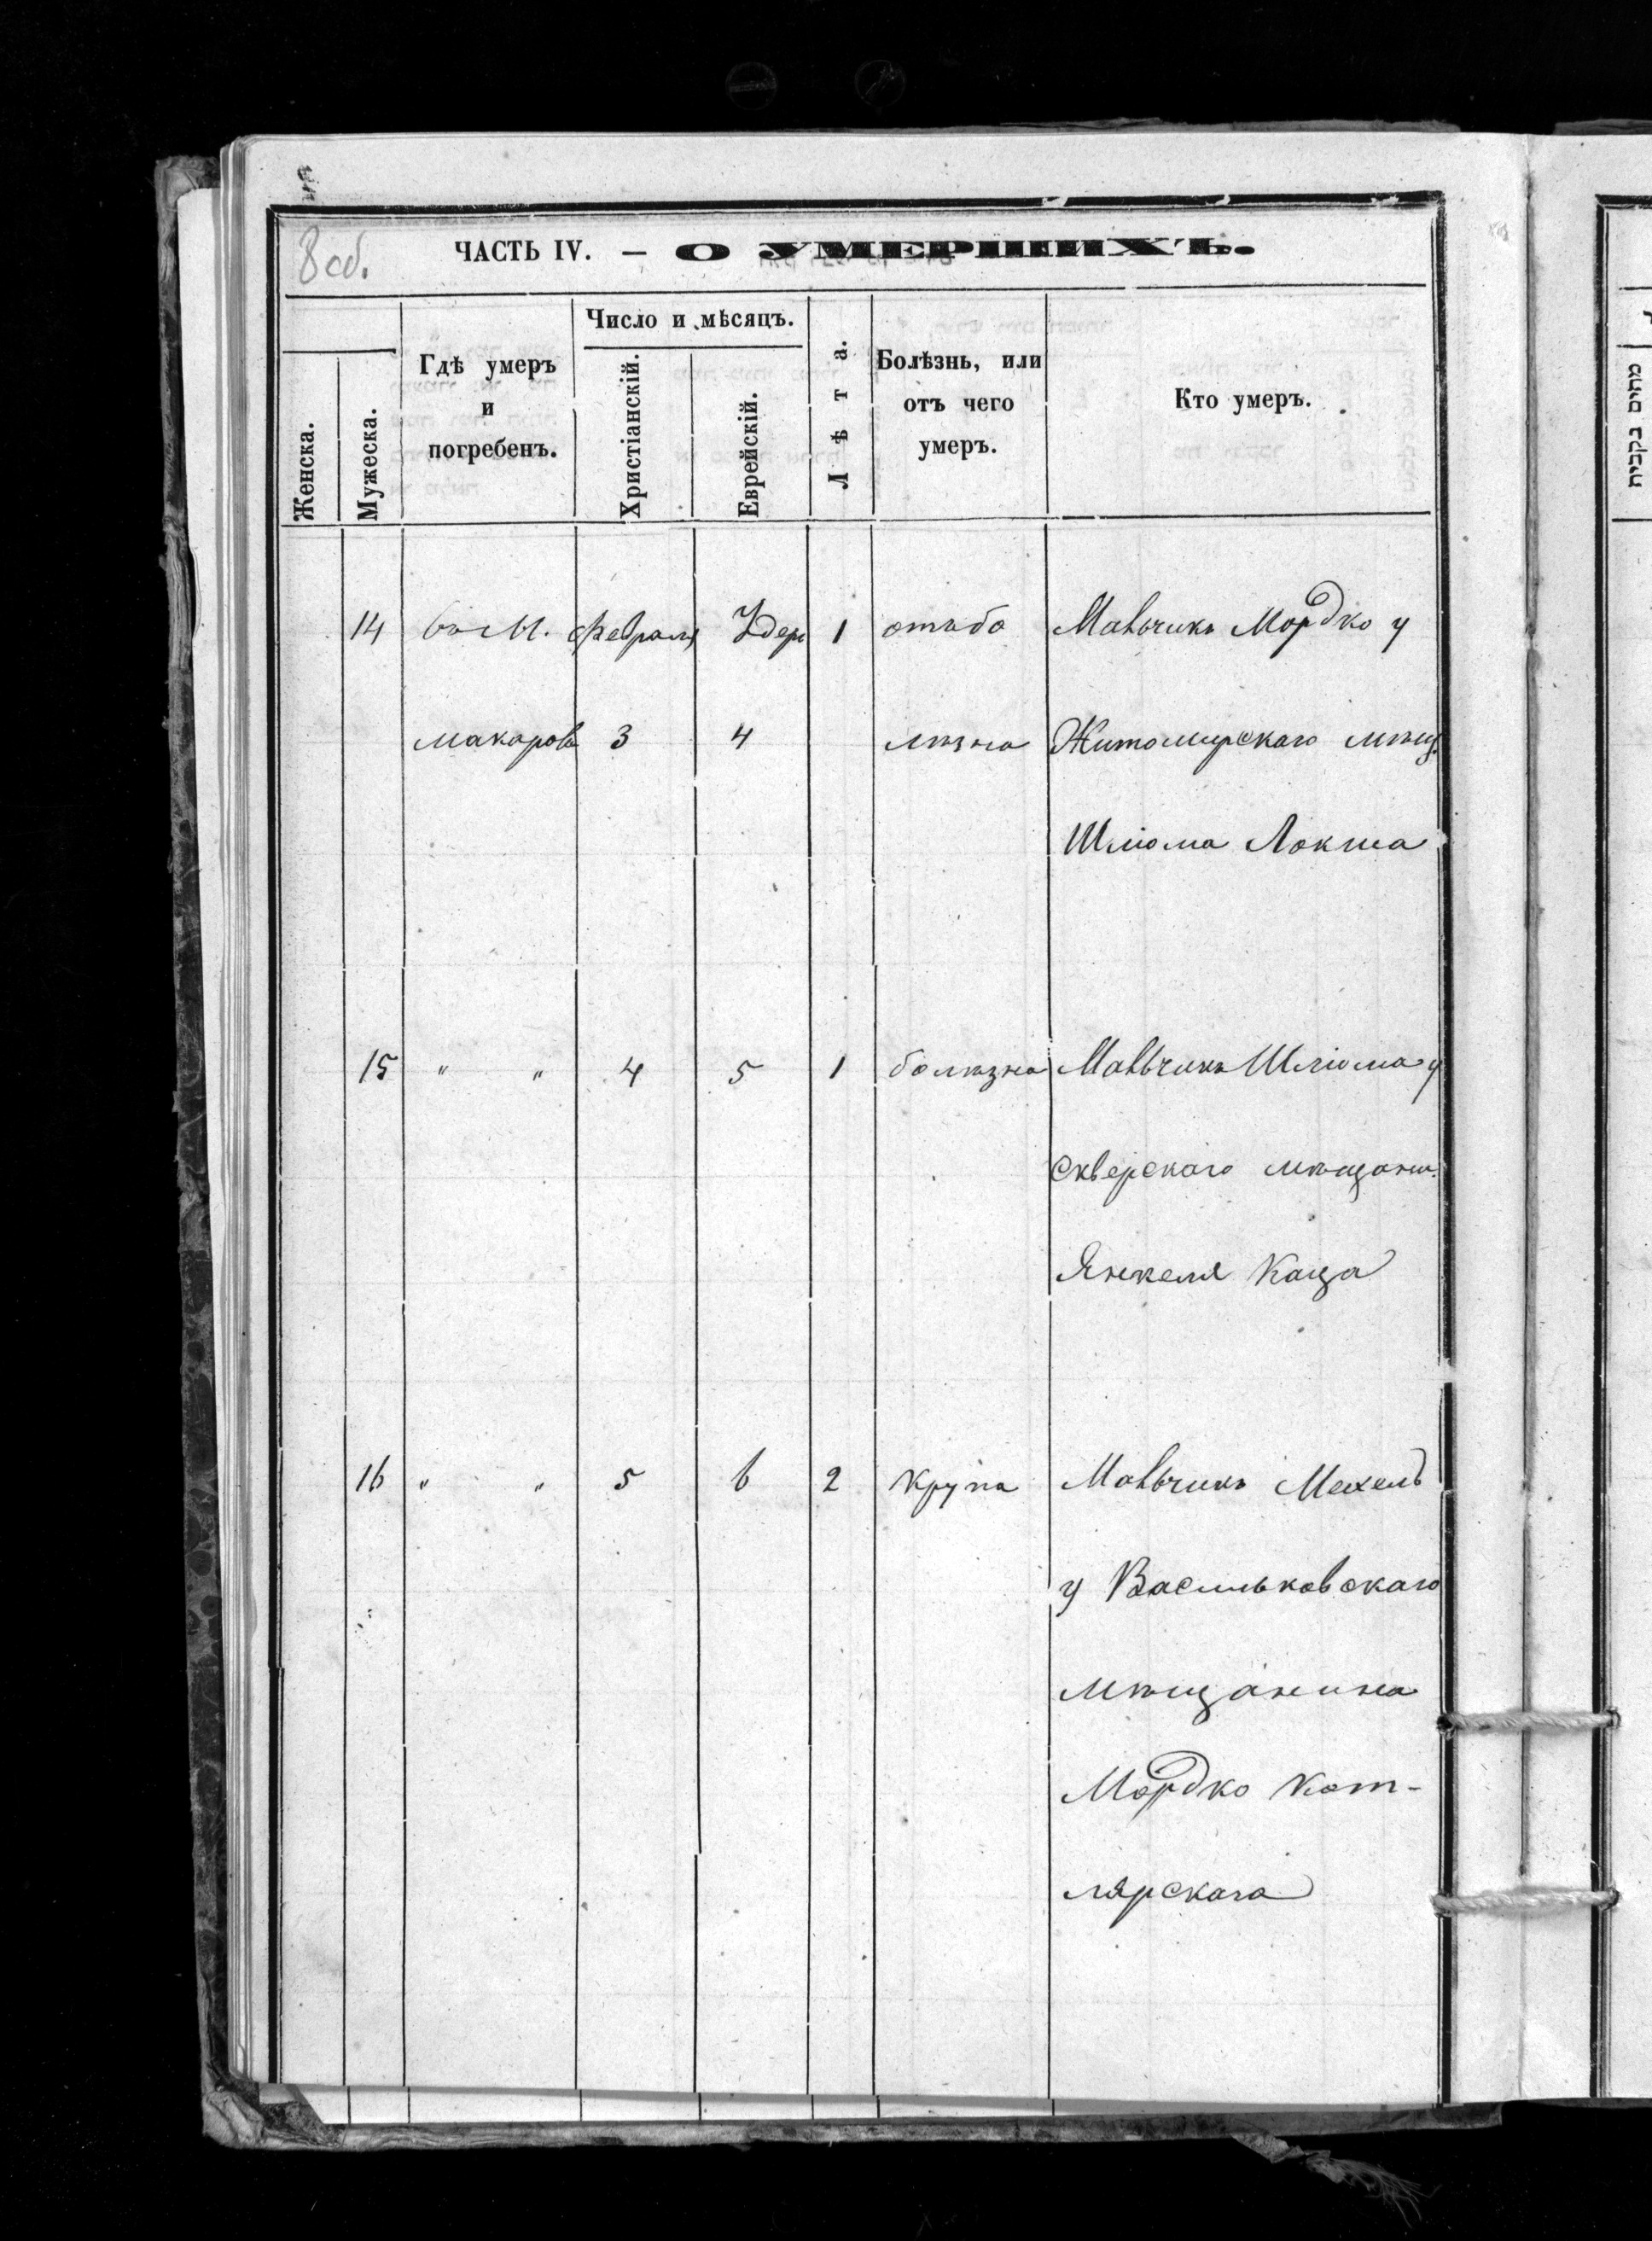 8 об.
ЧАСТЬ IV. — О УМЕРШИХЪ.
Женска.
Мужеска.
Гдѣ умеръ
и
погребенъ.
Число и мѣсяцъ.
Христіанскій.
Еврейскій.
Лѣта.
Болѣзнь, или
отъ чего
умеръ.
Кто умеръ.
14 въ М. Февраля Удер 1 отъ бо Мальчикъ Мордко у
Макаровѣ 3 4 лѣзна Житомирскаго мѣщ.
Шліома Локша
15 " " 4 5 1 болѣзна Мальчикъ Шліома у
Сквирскаго мѣщани.
Янкеля Каца
16 " " 5 6 2 Крупа Мальчикъ Мехель
у Васильковскаго
мѣщанина
Мордко Кот-
лярскаго
מחים בקבית